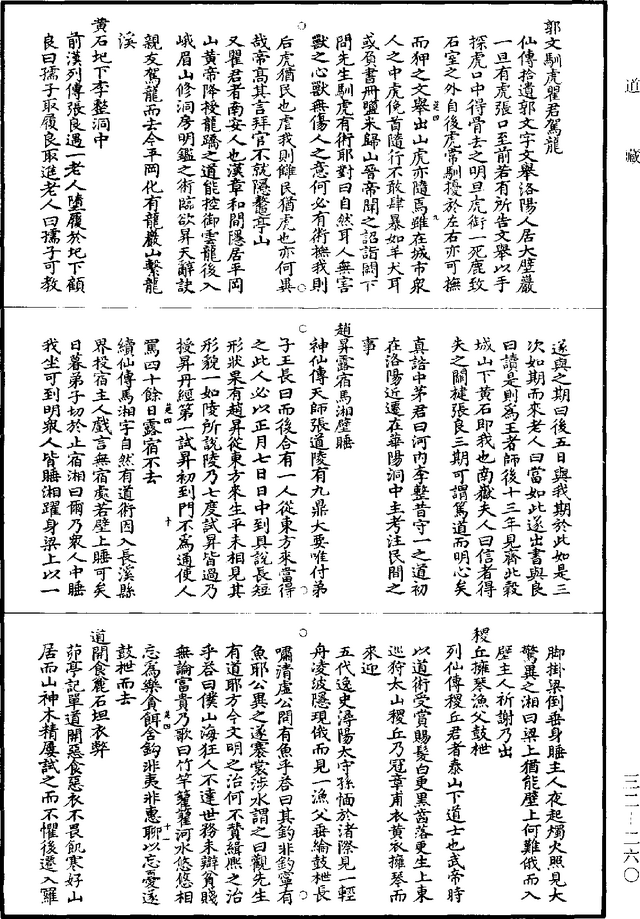 道藏
郭文馴虎瞿君駕龍
仙傳拾遺郭文字文舉洛陽人居大壁巖
一旦有虎張口至前若有所告文舉以手
探虎口中得骨去之明旦虎銜一死鹿致
石室之外自後虎常馴擾於左右亦可撫
而狎之文舉出山虎亦隨焉雖在城市衆
人之中虎俛首隨行不敢肆暴如羊犬耳
或負書冊鹽米歸山晉帝聞之詔詣闕下
問先生馴虎有術耶對曰自然耳人無害
獸之心獸無傷人之意何必有術撫我則
后虎猶民也虐我則讎民猶虎也亦何異
哉帝高其言拜官不就隱鰲亭山
又瞿君者南安人也漢章和間隱居平岡
山黃帝降授龍蹻之道能控御雲龍後入
峨眉山修洞房明鑑之術臨欲昇天辭訣
親友駕龍而去今平岡化有龍巖山繫龍
溪
黃石圯下李整洞中
前漢列傳張良遇一老人墮履於圯下顧
良曰孺子取履良取進老人曰孺子可教
遂與之期曰後五日與我期於此如是三
次如期而來老人曰當如此遂出書與良
曰讀是則爲王者師後十三年見濟北穀
城山下黃石即我也南嶽夫人曰信者得
失之關楗張良三期可謂篤道而明心矣
真誥中茅君曰河內李整昔守一之道初
在洛陽近遷在華陽洞中主考注民間之
事
趙昇露宿馬湘壁睡
神仙傳天師張道陵有九鼎大要唯付弟
子王長曰而後合有一人從東方來當得
之此人必以正月七日日中到具說長短
形狀果有趙昇從東方來生平未相見其
形貌一如陵所說陵乃七度試昇皆過乃
授昇丹經第一試昇初到門不爲通使人
罵四十餘日露宿不去
續仙傳馬湘字自然有道術因入長溪縣
界投宿主人戲言無宿處若壁上睡可矣
日暮弟子切於止宿湘曰爾乃衆人中睡
我坐可到明衆人皆睡湘躍身梁上以一
脚掛梁倒垂身睡主人夜起燭火照見大
驚異之湘曰梁上猶能壁上何難俄而入
壁主人祈謝乃出
稷丘擁琴漁父鼓枻
列仙傳稷丘君者泰山下道士也武帝時
以道術受賞賜髮白更黑齒落更生上東
巡狩太山稷丘乃冠章甫衣黃衣擁琴而
來迎
五代逸史潯陽太守孫愐於渚際見一輕
舟凌波隱現俄而見一漁父垂綸鼓枻長
嘯清虛公問有魚乎荅曰其釣非釣寧有
魚耶公異之遂褰裳涉水謂之曰觀先生
有道耶方今文明之治何不贊緝熙之治
乎荅曰僕山海狂人不達世務未辯貧賤
無論富貴乃歌曰竹竿籊籊河水悠悠相
忘爲樂貪餌吞鈎非夷非惠聊以忘憂遂
鼓枻而去
道開食麄石坦衣弊
茆亭記單道開惡食惡衣不畏飢寒好山
居而山神木精屢試之而不懼後遷入羅
三二—二六〇